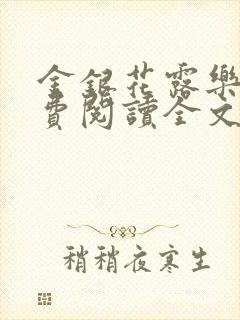 金銀花露樂
費閱讀全文
稍稍夜寒生